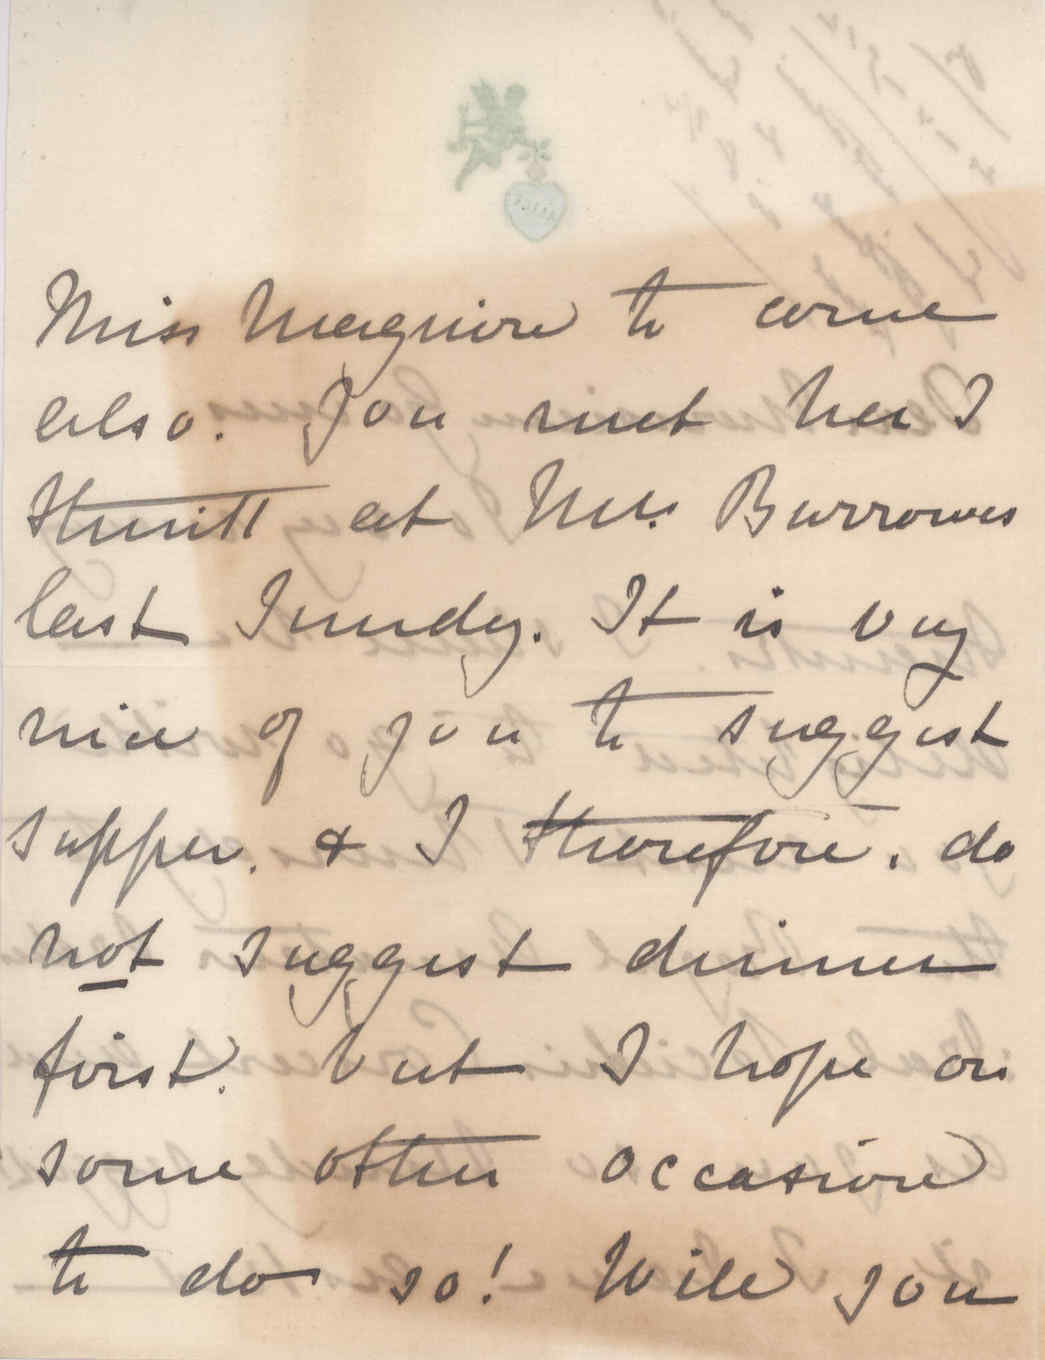 Miss Maguire to come
also. You met her I
think at Mrs. Burrowes
last Sunday. It is very
nice of you to suggest
supper. & I therefore. do
not suggest dinner
first. but I hope on
some other occasion
to do so! Will you